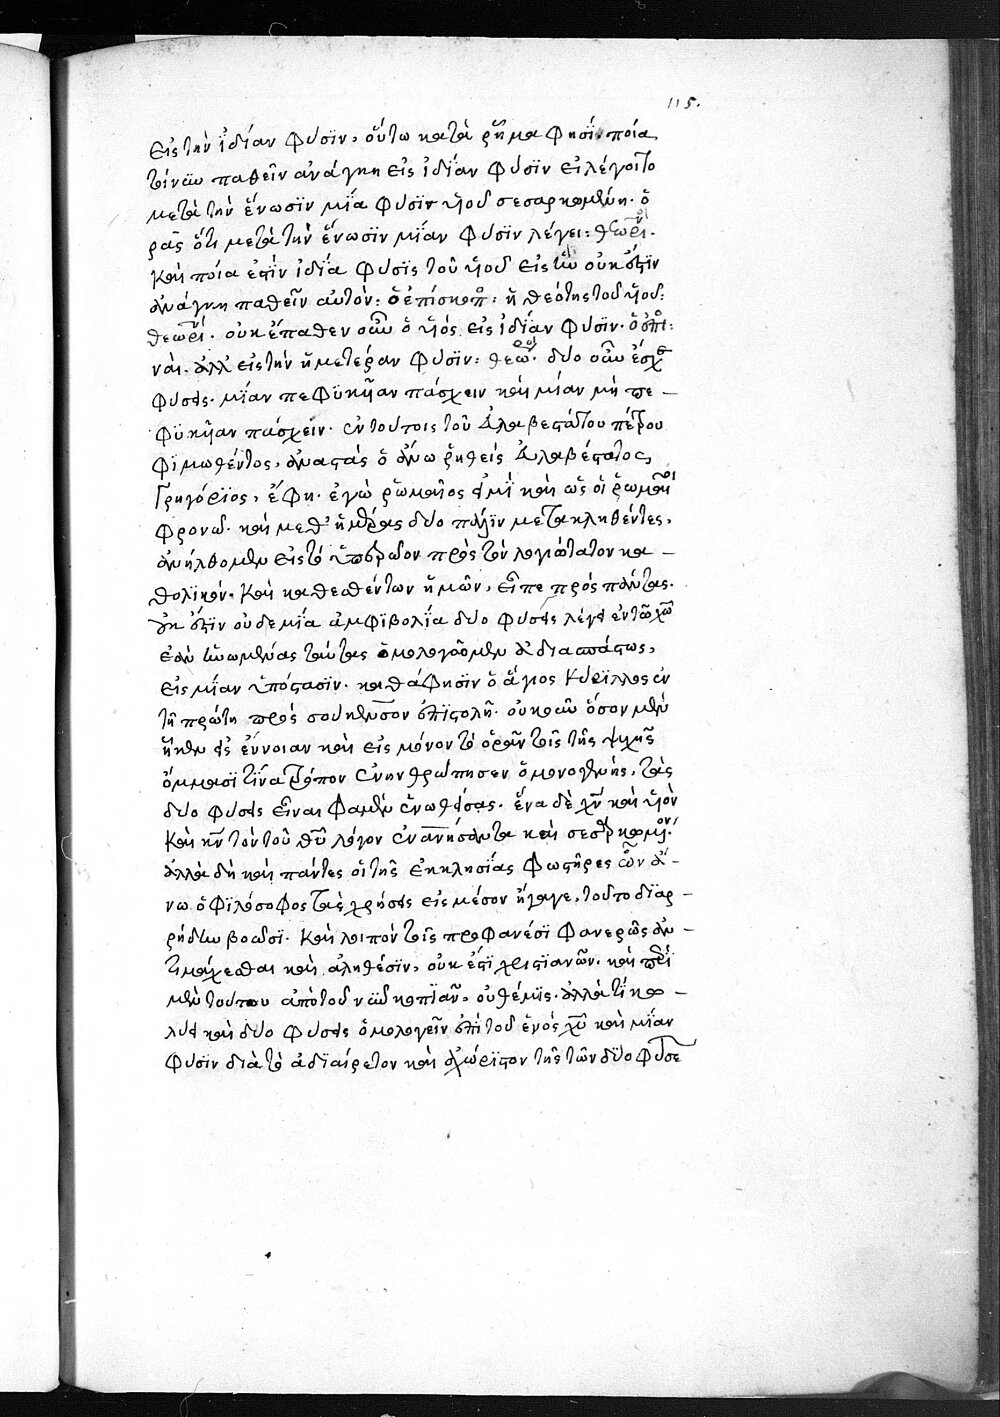 115.
εἰς τὴν ἰδίαν φύσϊν, οὕτω κατὰ ῥῆμα φησϊ· ποία
τίνϊω παθεῖν ἀνάγκη εἰς ἰδϊαν φύσϊν εἰ λέγοιτο
μετὰ τὴν ἕνωσϊν μΐα φύσϊν τοῦ σεσαρκωμένη· ὁ
ρᾶς ὅτι μετὰ τὴν ἕνωσϊν μΐαν φύσϊν λέγει: θεωρι.
καὶ ποία ἐστϊν ἰδϊα φύσϊς τοῦ υἱοῦ εἰς ἣν οὐκ ἔστϊν
ἀνάγκη παθεῖν αὐτόν: ὁ ἐπίσκοπ: ἡ θεότης τοῦ υἱοῦ:
θεωρι. οὐκ ἔπαθεν οὖν ὁ υἱὸς εἰς ἰδΐαν φύσϊν· ὁ ἐπι:
ναὶ. ἀλλ' εἰς τὴν ἡμετέραν φύσϊν: θεωρ. δύο οὖν ἔσχε
φύσεις. μΐαν πεφϋκῆαν πάσχειν καὶ μίαν μὴ πε –
φϋκῆαν πάσχειν. ἐν τούτοις τοῦ Ἀλαβεστάτου πέτρου
φϊμωθέντος, ἀναστὰς ὁ ἄνω ῥηθεὶς Ἀλαβέστατος
Γρηγόρϊος, ἔφη. ἐγὼ ῥωμαῖος εἰμϊ καὶ ὡς οἱ ῥωμαῖοι
φρονῶ. καὶ μεθ' ἡμέρας δύο πάλϊν μετακληθέντες,
ἀνήλθομεν εἰς τὸ ὑπερῶον πρὸς τὸν λογιώτατον κα –
θολικόν. καὶ καθεσθέντων ἡμῶν, εἶπε πρὸς πάντας.
οὐκ ἔστϊν οὐδεμΐα ἀμφϊβολΐα δύο φύσεις λέγειν ἐν τῷ χῷ
ἐὰν ἡνωμένας ταύτας ὁμολογοῦμεν ἀδιασπάστως,
εἰς μΐαν ὑπόστασϊν. καθά φησϊν ὁ ἅγιος Κύρϊλλος ἐν
τῇ πρώτῃ πρὸς σούκενσον ἐπϊστολῇ. οὐκοῦν ὅσον μὲν
ἧκεν εἰς ἔννοιαν καὶ εἰς μόνον τὸ ὁρᾶν τοῖς τῆς ψυχῆς
ὄμμασϊ τίνα τρόπον ἐνηνθρώπησεν ὁ μονογενὴς, τὰς
δύο φύσεις εἶναι φαμὲν ἑνωθείσας. ἕνα δὲ χν καὶ υἱὸν
καὶ κν τὸν τοῦ θυ λόγον ἐνανήσαντα καὶ σεσαρκωμένον.
ἀλλὰ δὴ καὶ πάντες οἱ τῆς ἐκκλησΐας φωστῆρες ὧν ἄ –
νω ὁ φϊλόσοφος τὰς χρήσεις εἰς μέσον ἤγαγε, τοῦτο δϊαρ –
ρήδην βοῶσϊ. καὶ λοιπὸν τοῖς προφανέσϊ φανερῶς ἀν –
τιμάχεσθαι καὶ ἀληθέσϊν, οὐκ ἔστϊ χριστϊανῶν. καὶ περὶ
μὲν τούτου ἀπὸ τοῦ νῦν κοπϊαν, οὐ θέμϊς. ἀλλὰ τί κω –
λύει καὶ δύο φύσεις ὁμολογεῖν ἐπὶ τοῦ ἑνός χυ καὶ μΐαν
φύσϊν διὰ τὸ ἀδϊαίρετον καὶ ἀχώρϊστον τῆς τῶν δύο φύσε